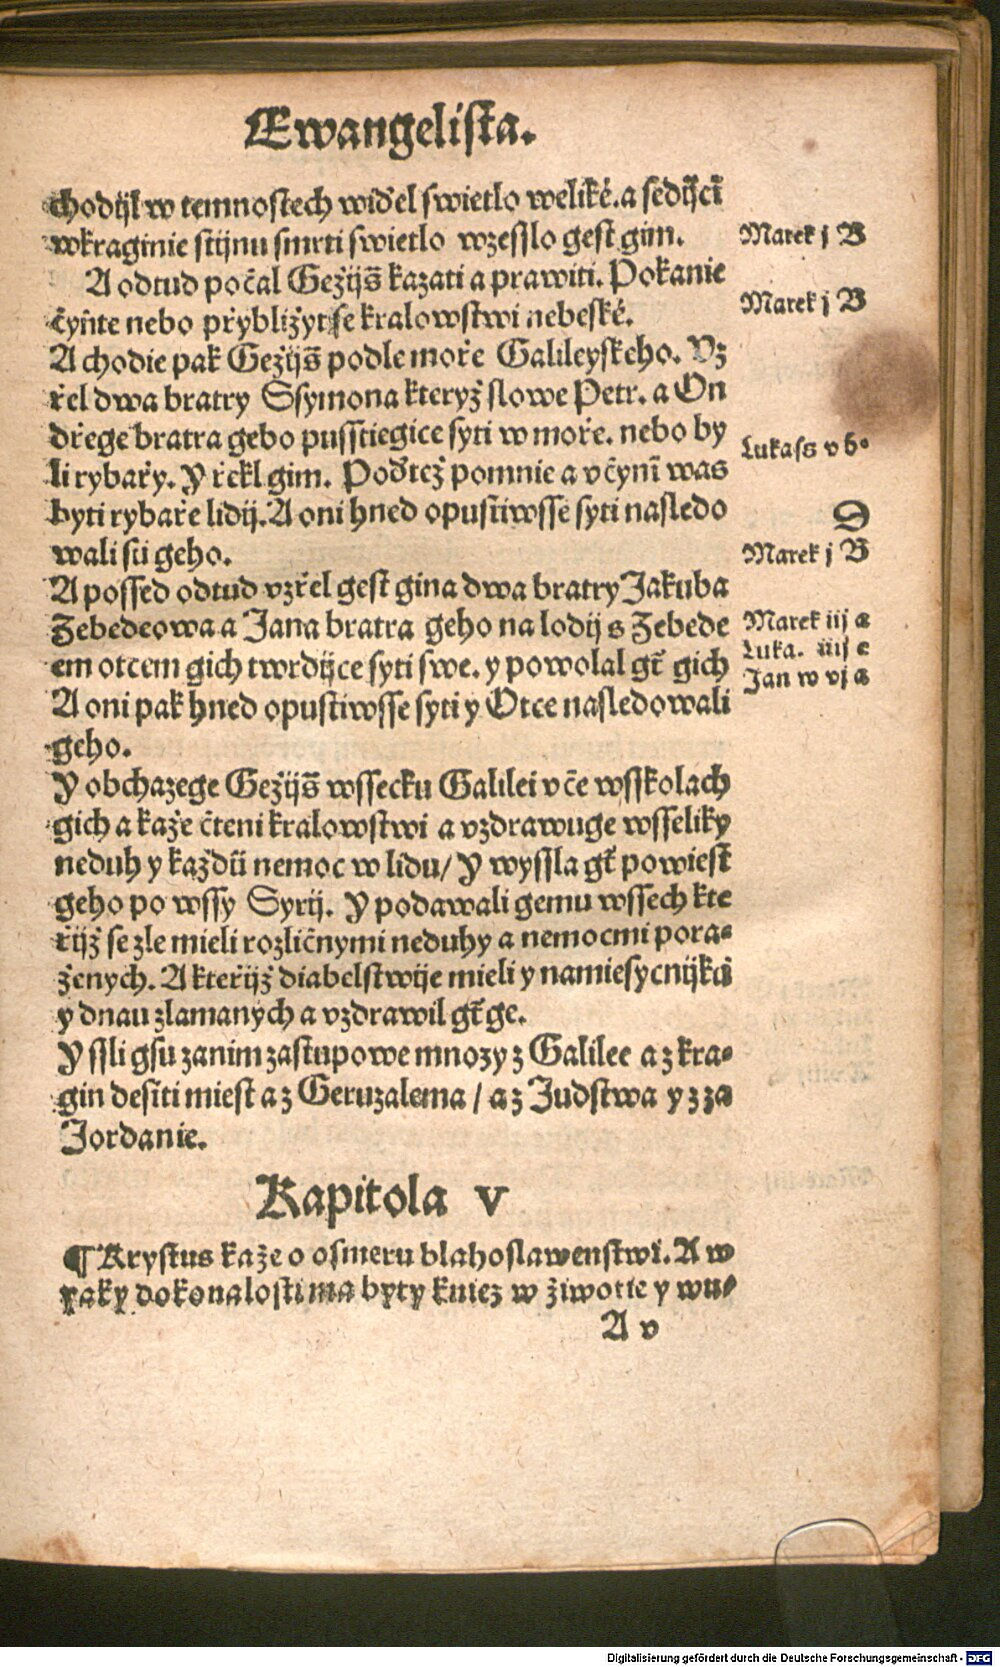 Ewangelista.
chodijl w temnostech widˇel swietlo weliké. a sedijcı̃
wkraginie stijnu smrti swietlo wzesslo gest gim.
Marek j B
A odtud počal Gežijs̃ kazati a prawiti. Pokanie
čyňte nebo přybližyt se kralowstwi nebeské.
Marek j B
A chodie pak Gežijs̃ podle moře Galileyskeho. Vz
řel dwa bratry Ssymona kteryž slowe Petr. a On
dřege bratra gebo pusstiegice syti w moře. nebo by
Lukass v b.
li rybařy. Y řekl gim. Poďtež pomnie a včynı̃ was
byti rybaře lidij. A oni hned opustiwsse syti nasledo
D
wali su geho.
Marek j B
A possed odtud vzřel gest gina dwa bratry Jakuba
Zebedeowa a Jana bratra geho na lodij s Zebede
Marek iij a
em otcem gich twrdijce syti swe. y powolal gt̃ gich
Luka. iiij e
Jan w vj a
A oni pak hned opustiwsse syti y Otce nasledowali
geho.
Y obchazege Gežijs̃ wssecku Galilei vče wsskolach
gich a kaže čteni kralowstwi a vzdrawuge wsseliky
neduh y každu nemoc w lidu / Y wyssla gt̃ powiest
geho po wssy Syrij. Y podawali gemu wssech kte
řijž se zle mieli rozličnymi neduhy a nemocmi pora-
ženych. A kteřijž diabelstwije mieli y namiesycnijků
y dnau zlamanych a vzdrawil gt̃ ge.
Y ssli gsu zanim zastupowe mnozy z Galilee a z kra-
gin desiti miest a z Geruzalema / a z Judstwa y z za
Jordanie.
Kapitola v
¶ Krystus kaže o osmeru blahoslawenstwı̃. A w
yaky dokonalosti ma byty kniez w žiwotie y wu-
A v
Digitalisierung gefördert durch die Deutsche Forschungsgemeinschaft - DFG